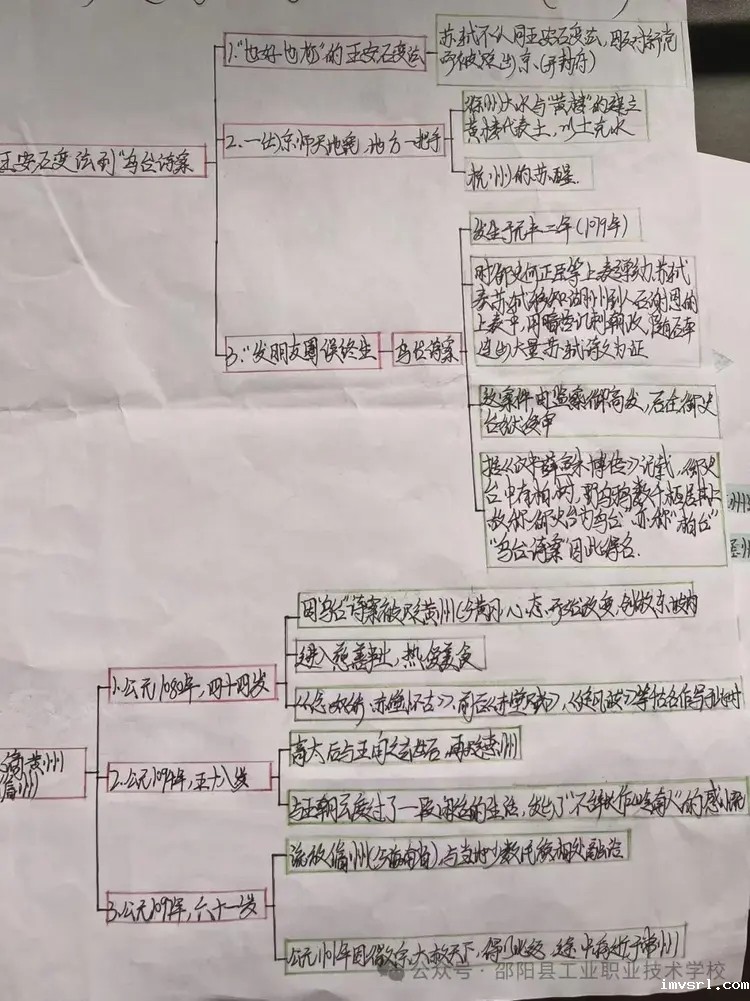 1."也好也怼"的王安石变法
苏轼不认同王安石变法,因反对新党
而被贬出京(开封府)
王安石变法到"乌台诗案
2.一出京师天地宽,地方一把手
徐州大水与"黄楼"的建立
黄楼代表土,以土克水
杭州的苏醒
3."发朋友圈误终生
乌台诗案
发生于元丰二年(1079年)
时御史何正臣等上表弹劾苏轼
奏苏轼移知湖州到任后谢恩的
上表中,用暗语讥刺朝政,随后牵
连出大量苏轼诗文为证
该案件由监察御史告发,后在御史
台狱受审
据《汉书薛宣朱博传》记载,御史
台中有柏树,野乌鸦数千栖居其上
故称御史台为"乌台",亦称"柏台"
"乌台诗案"因此得名.
州
1.公元1080年,四十四岁
因"乌台"诗案被贬黄州(今黄冈),心态开始改变,
进入慈善事业,热爱美食
《念奴娇·赤壁怀古》、前后《赤壁赋》,《定风波》等
黄州
儋州
2.公元1094年,五十八岁
高太后与王闰之去世后,再贬惠州
与王朝云度过了一段闲适的生活,发出了"不辞长作岭南人"的感慨
3.公元109年,六十一岁
流放儋州(今海南省),与当地少数民族相处融洽
公元1101年因徽宗大赦天下,得以北返,途中病逝于常州
公众号·邵阳县工业职业技术学校
imvsr1.com